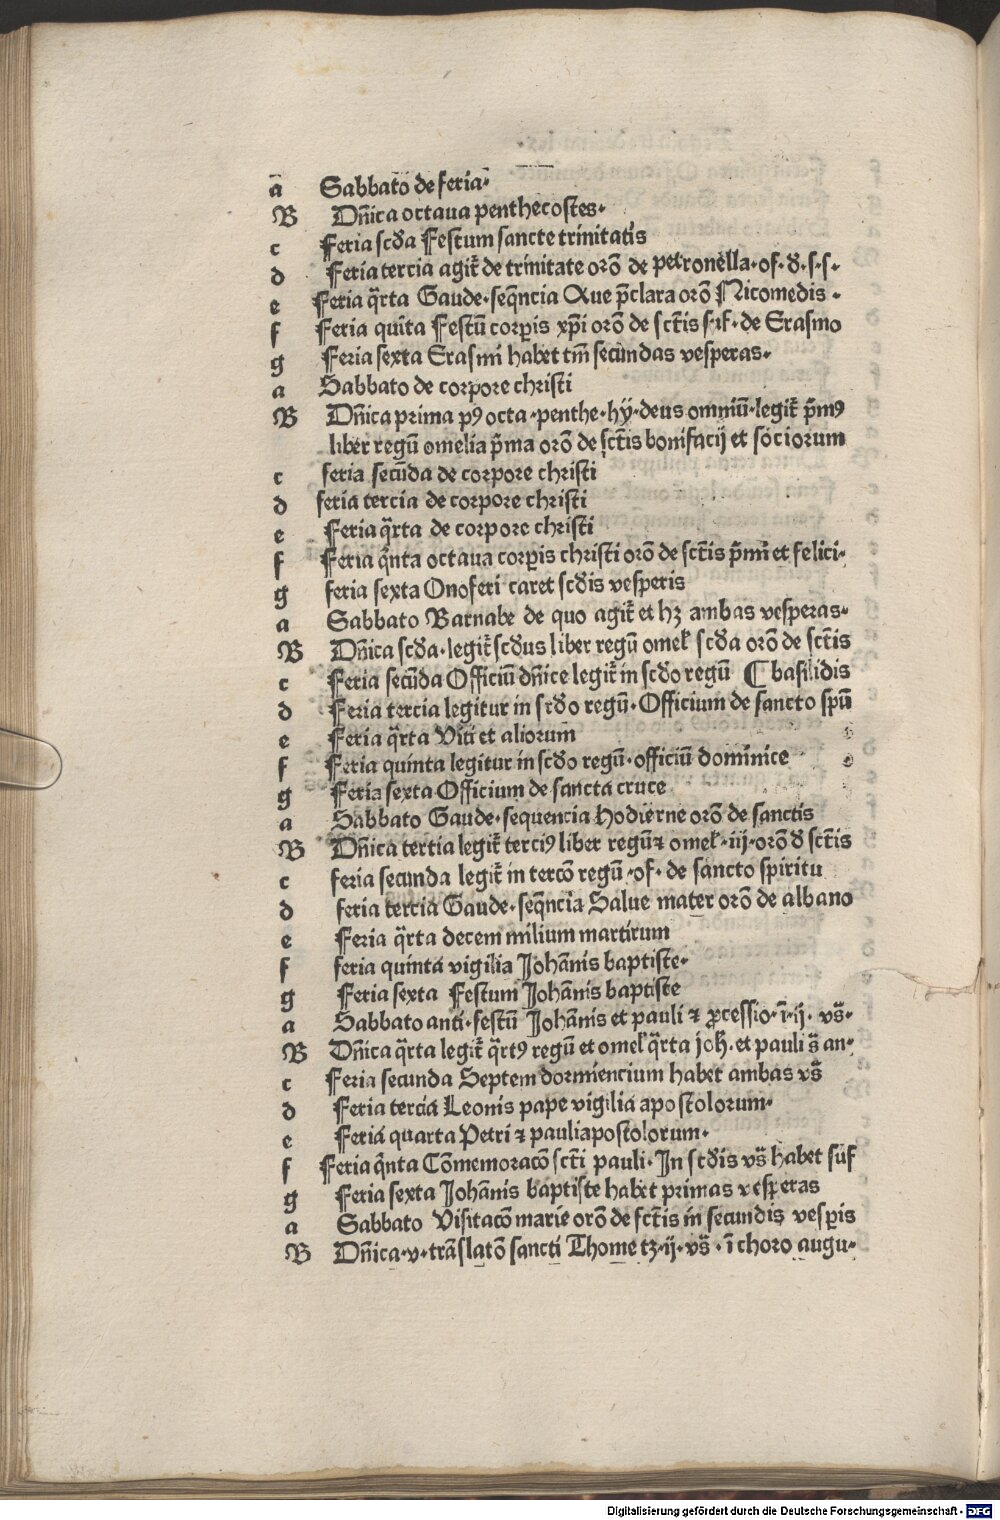 a Sabbato de feria·
B Dn̄ica octaua penthecostes·
c Feria scd̄a Festum sancte trinitatis
d Feria tercia agit̄ de trinitate orō de petronella·of·d̄·s·s·
e Feria q̄rta Gaude·seq̄ncia Aue p̄clara orō Nicomedis·
f Feria quīta Festū corp̲is xp̄i orō de sct̄is s·if·de Erasmo
g Feria sexta Erasmi habet tm̄ secundas vesperas·
a Sabbato de corpore christi
B Dn̄ica prima pꝰ octa·penthe·hy·deus omniū·legit̄ p̄mꝰ
liber regū omelia p̄ma orō de sct̄is bonifacij et sociorum
c feria secūda de corpore christi
d feria tercia de corpore christi
e Feria q̄rta de corpore christi
f Feria q̄nta octaua corp̲is christi orō de sct̄is p̄mi et felici·
g feria sexta Onoferi caret scd̄is vesperis
a Sabbato Barnabe de quo agit̄ et hꝫ ambas vesperas·
B Dn̄ica scd̄a·legit̄ scd̄us liber regū omel̄ scd̄a orō de sct̄is
c Feria secūda Officiū dn̄ice legit̄ in scd̄o regū ¶ basilidis
d Feria tercia legitur in srd̄o regū·Officium de sancto spū
e Feria q̄rta Viti et aliorum
f Feria quinta legitur in scd̄o regū·officiū dominice
g Feria sexta Officium de sancta cruce
a Sabbato Gaude·sequencia Hodierne orō de sanctis
B Dn̄ica tertia legit̄ terciꝰ liber regūꝛ omel̄·iij·orō d̄ sct̄is
c feria secunda legit̄ in tercō regū·of·de sancto spiritu
d feria tercia Gaude·seq̄ncia Salue mater orō de albano
e Feria q̄rta decem milium martirum
f feria quinta vigilia Johān̄is baptiste·
g Feria sexta Festum Johān̄is baptiste
a Sabbato anti·festū Johān̄is et pauli ꝛ ꝓcessio·ī·ij·vs̄·
B Dn̄ica q̄rta legit̄ q̄rtꝰ regū et omel̄ q̄rta joh̄·et pauli s̄ an·
c Feria secunda Septem dormiencium habet ambas vs̄
d Feria tercia Leonis pape vigilia apostolorum·
e Feria quarta Petri ꝛ pauliapostolorum·
f Feria q̄nta Cōmemoracō sct̄i pauli·In scd̄is vs̄ habet suf
g Feria sexta Johān̄is baptiste habet primas vesperas
a Sabbato Visitacō marie orō de sct̄is in secundis vesp̲is
B Dn̄ica·v·trāslatō sancti Thome tꝫ·ij·vs̄·ī choro augu·
Digitalisierung gefördert durch die Deutsche Forschungsgemeinschaft - DFG